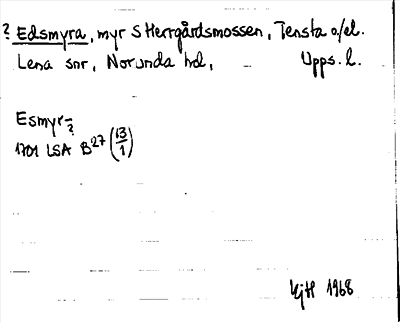 ? Edsmyra, myr S Herrgårdsmossen, Tensta o/el.
Lena snr, Norunda hd, Upps. l.
Esmyr-?
1701 LSA B27 (13/1)
1968